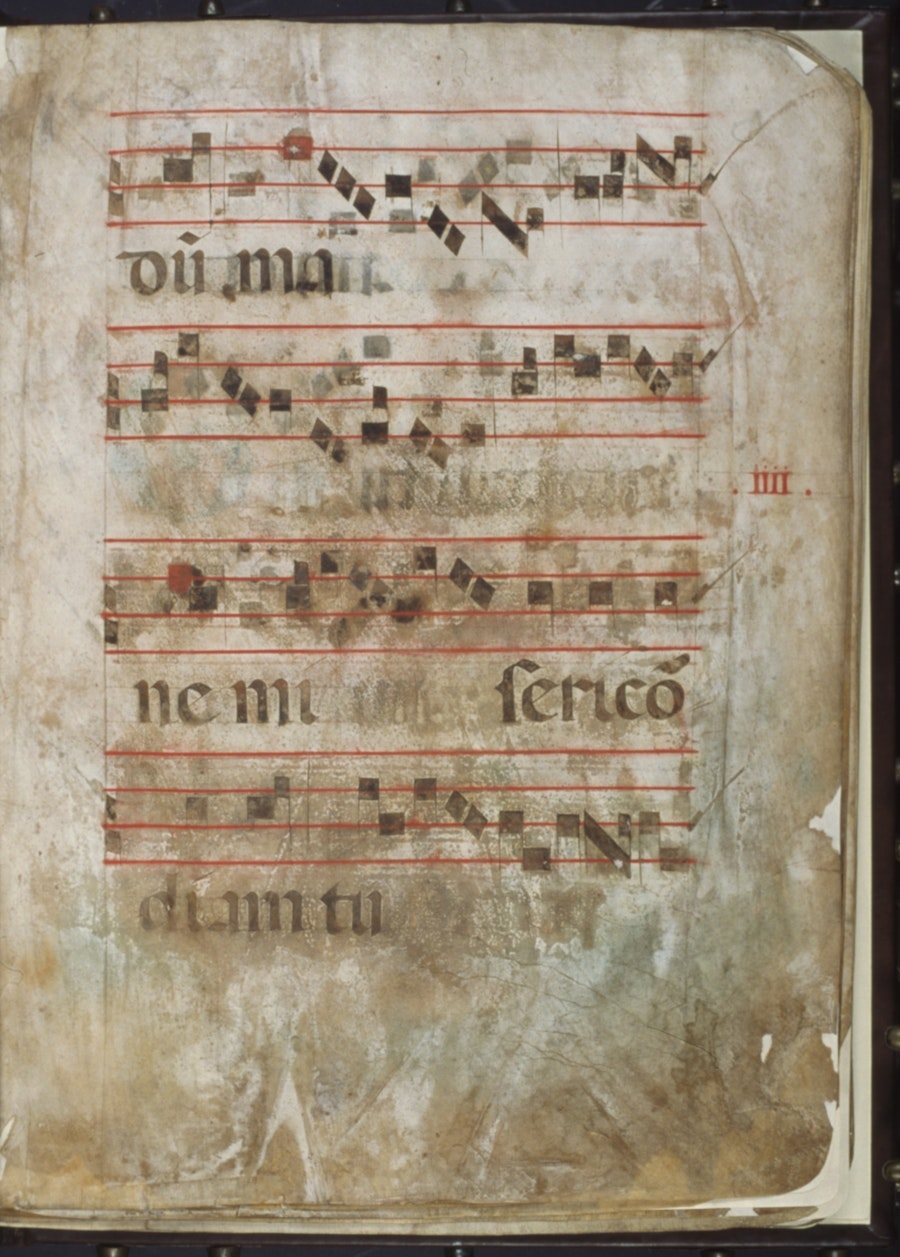 dū ma
.iiii.
ne mi sericō
diam tu